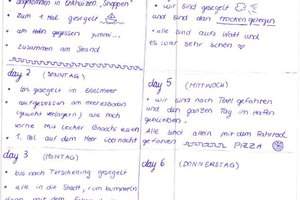 angekommen in Enkhuizen "Shoppen"
zum 1. Mal gesegelt
am Hafen gegessen yummi...
zusammen am Strand
day 2 (SONNTAG)
los gesegelt im
aufgesessen am
(Gewicht verlagern)
vorne mit lecker
1. Mal auf dem Meer übernachtet
day 3 (MONTAG)
bis nach Terschelling gesegelt
alle in die Stadt, rum bummeln
wir sind gesegelt
und sind dann trocken gelegen
alle sind aufs Watt und
es war sehr schön
day 5 (MITTWOCH)
wir sind nach Texel gefahren
und den ganzen Tag im Hafen
geblieben.
Alle sind allein mit dem Fahrrad
gefahren PIZZA
day 6 (DONNERSTAG)